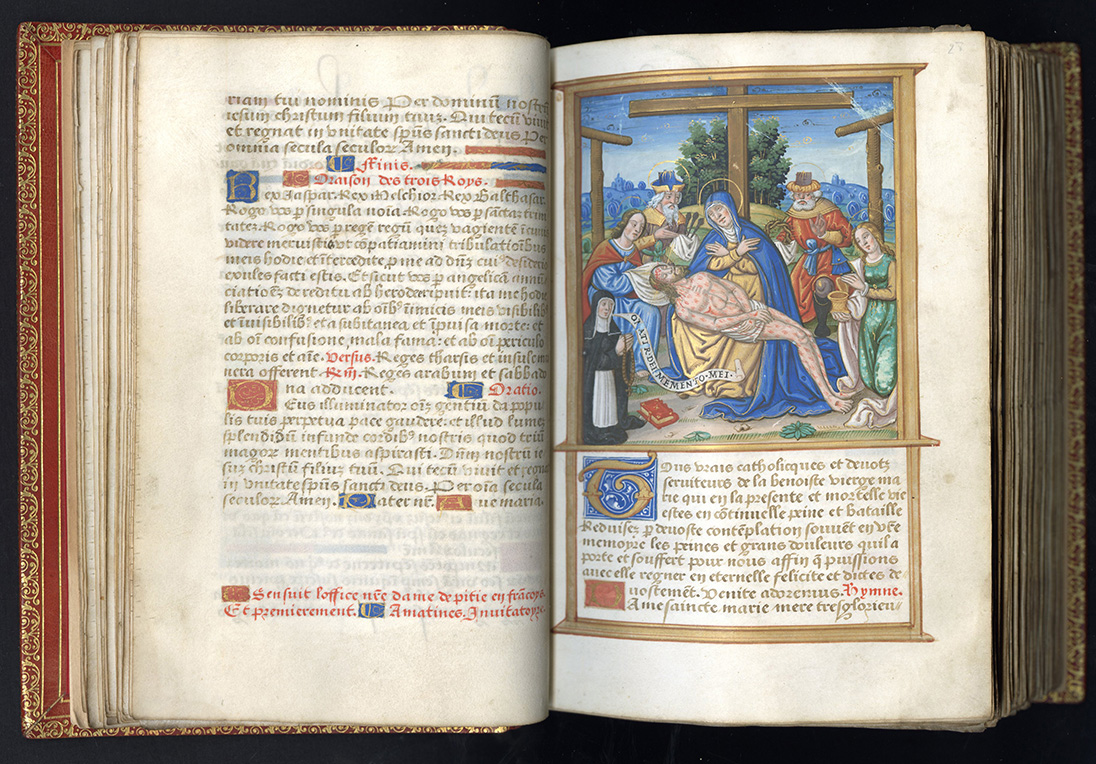 riam tui nominis Per dominū nostrū
iesum christum filium tuuz. Qui tecū vivit
et regnat in vnitate spūs sancti deus Per
omnia secula seculor Amen.
Ffinis.
Oraison des trois Roys.
Rex Jaspar. Rex Melchior. Rex Balthasar.
Rogo vos p singula noīa Rogo vos p sanctaz trini
tatez. Rogo vos p regē regū quez vagientē ī cunis
videre meruistis vt cōpatiamini tribulationibus
meis hodie et ītercedite p me ad dnz cui desiderio
exules facti estis. Et sicut vos p angelicā annū
ciationēz de reditu ab herode eripuit: ita me hodie
liberare dignetur ab oībꝰ īimicis meis visibilibꝰ
et īuisibilibꝰ et a subitanea et īpuisa morte: et
ab oī confusione, mala fama: et ab oī periculo
corporis et aīe. Versus. Reges tharsis et insule mu
nera offerent. Rm. Reges arabum et sabba do
na adducent. Oratio.
Deus illuminator oīz gentiū da popu
lis tuis perpetua pace gaudere: et illud lumen
splendidū infunde cordibꝰ nostris quod triū
magor mentibus aspirasti. Dnm nostrū ie
suz christū filiuz tuū. Qui tecū vivit et regnat
in vnitate spūs sancti deus. Per oīa secula
seculor Amen. Pater nr̄. Aue maria.
Sensuit loffice nr̄e dame de pitie en francoys.
Et premierement. Amatines. Inuitatoyre.
O MATER DEI MEMENTO MEI
Tous vrais catholicques et deuotz
seruiteurs de la benoiste vierge ma
rie qui en la presente et mortelle vie
estes en cōtinuelle peine et bataille
Reduisez p deuoste contēplation souuēt en vr̄e
memoyre les peines et grans douleurs quil a
porte et souffert pour nous affin q puissions
auec elle regner en eternelle felicite et dictes de
uostemēt. Venite adoremus. Hymne.
Ame saincte marie mere tresglorieu